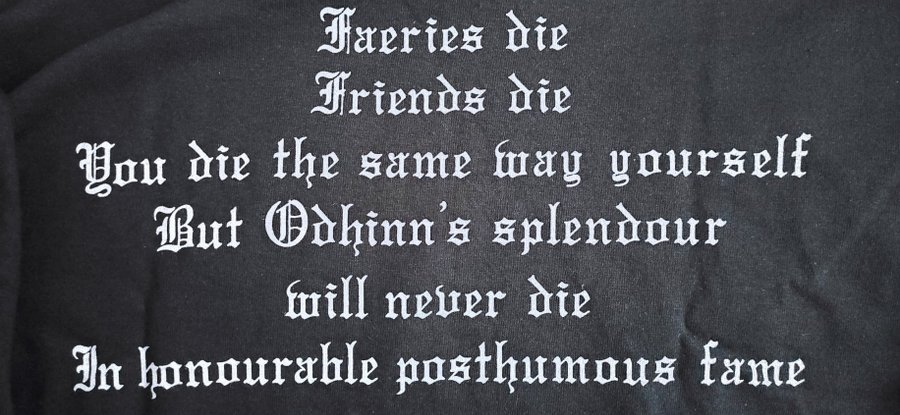 Faeries die
Friends die
You die the same way yourself
But Odhinn's splendour
will never die
In honourable posthumous fame